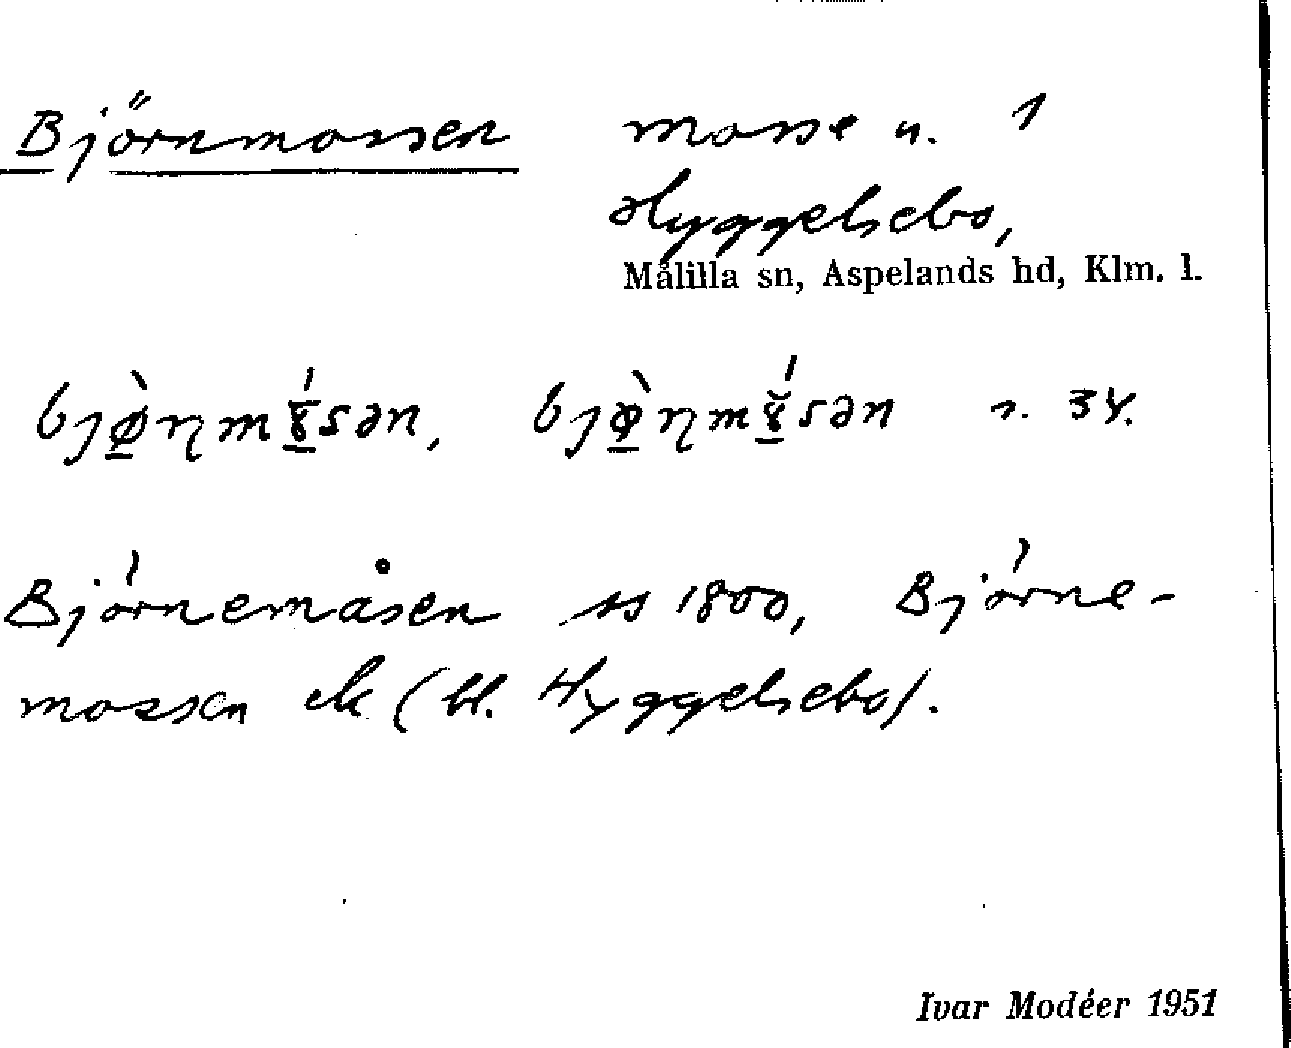 Björnmossen mosse n. 1
Hyggelsebo,
Målilla sn, Aspelands hd, Klm. l.
s. 34.
Björnemåsen ss 1800, Björne-
mossen ek (bl. Hyggelsebo).
Ivar Modéer 1951